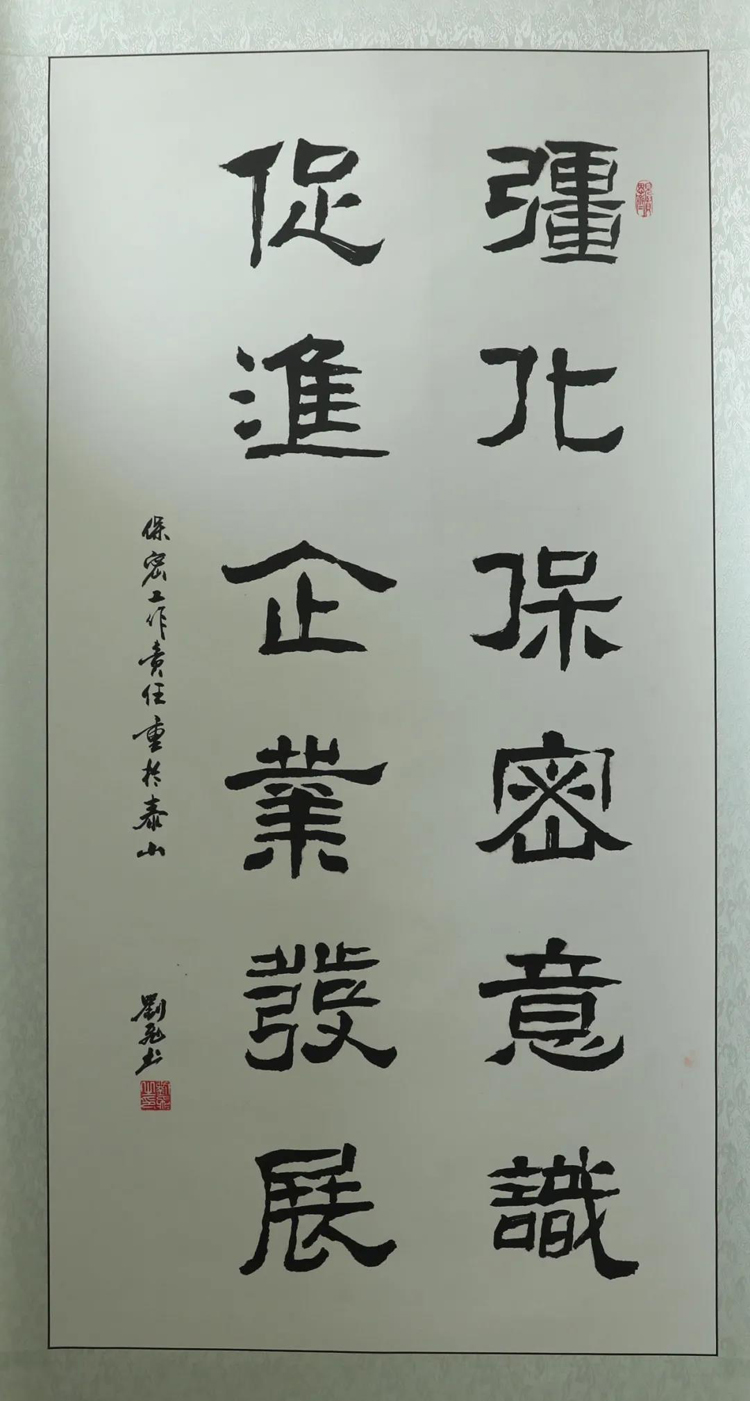 彊化保密意識
促進企業發展
保密工作責任重於泰山
劉飛书